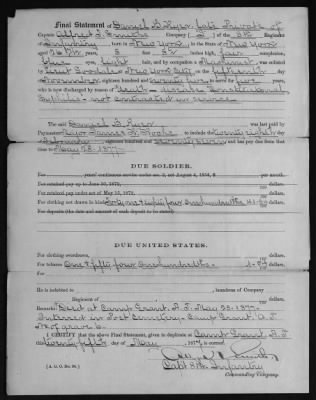 Final Statement of Daniel B. Ryan, late Private of
Captain Alfred T. Smith's Company ( ), of the 8th Regiment
of Infantry, born in New York in the State of New York
aged years, feet inches high, fair complexion,
blue eyes, light hair, and by occupation a Machinist was enlisted
by Lieut. Goodale at New York City on the fifteenth day of
November eighteen hundred and seventy five to serve five years,
who is now discharged by reason of Death - disease Constitutional
Syphilis - not contracted in service.
The said Daniel B. Ryan was last paid by
Paymaster Major James to include the twenty eighth day of
February eighteen hundred and seventy seven and has pay due from that
time to May 23, 1877.
DUE SOLDIER.
For years' continuous service under sec. 2, act August 4, 1854, $ per month.
For retained pay up to June 30, 1872, dollars.
For retained pay under act of May 15, 1872, dollars.
For clothing not drawn in kind dollars.
For deposits (the date and amount of each deposit to be stated)
DUE UNITED STATES.
For clothing overdrawn, dollars.
For tobacco One & fifty four one hundredths dollars.
He is indebted to , laundress of Company
Regiment of dollars.
Remarks: Died at Camp Grant, A. T. May 23, 1877.
Interred in Post Cemetery, Camp Grant, A. T.
No. of grave 6.
I CERTIFY that the above Final Statement, given in duplicate at Camp Grant, A. T.
this twenty fifth day of May, 1877, is correct.
Capt. 8th Infantry
Commanding Company.